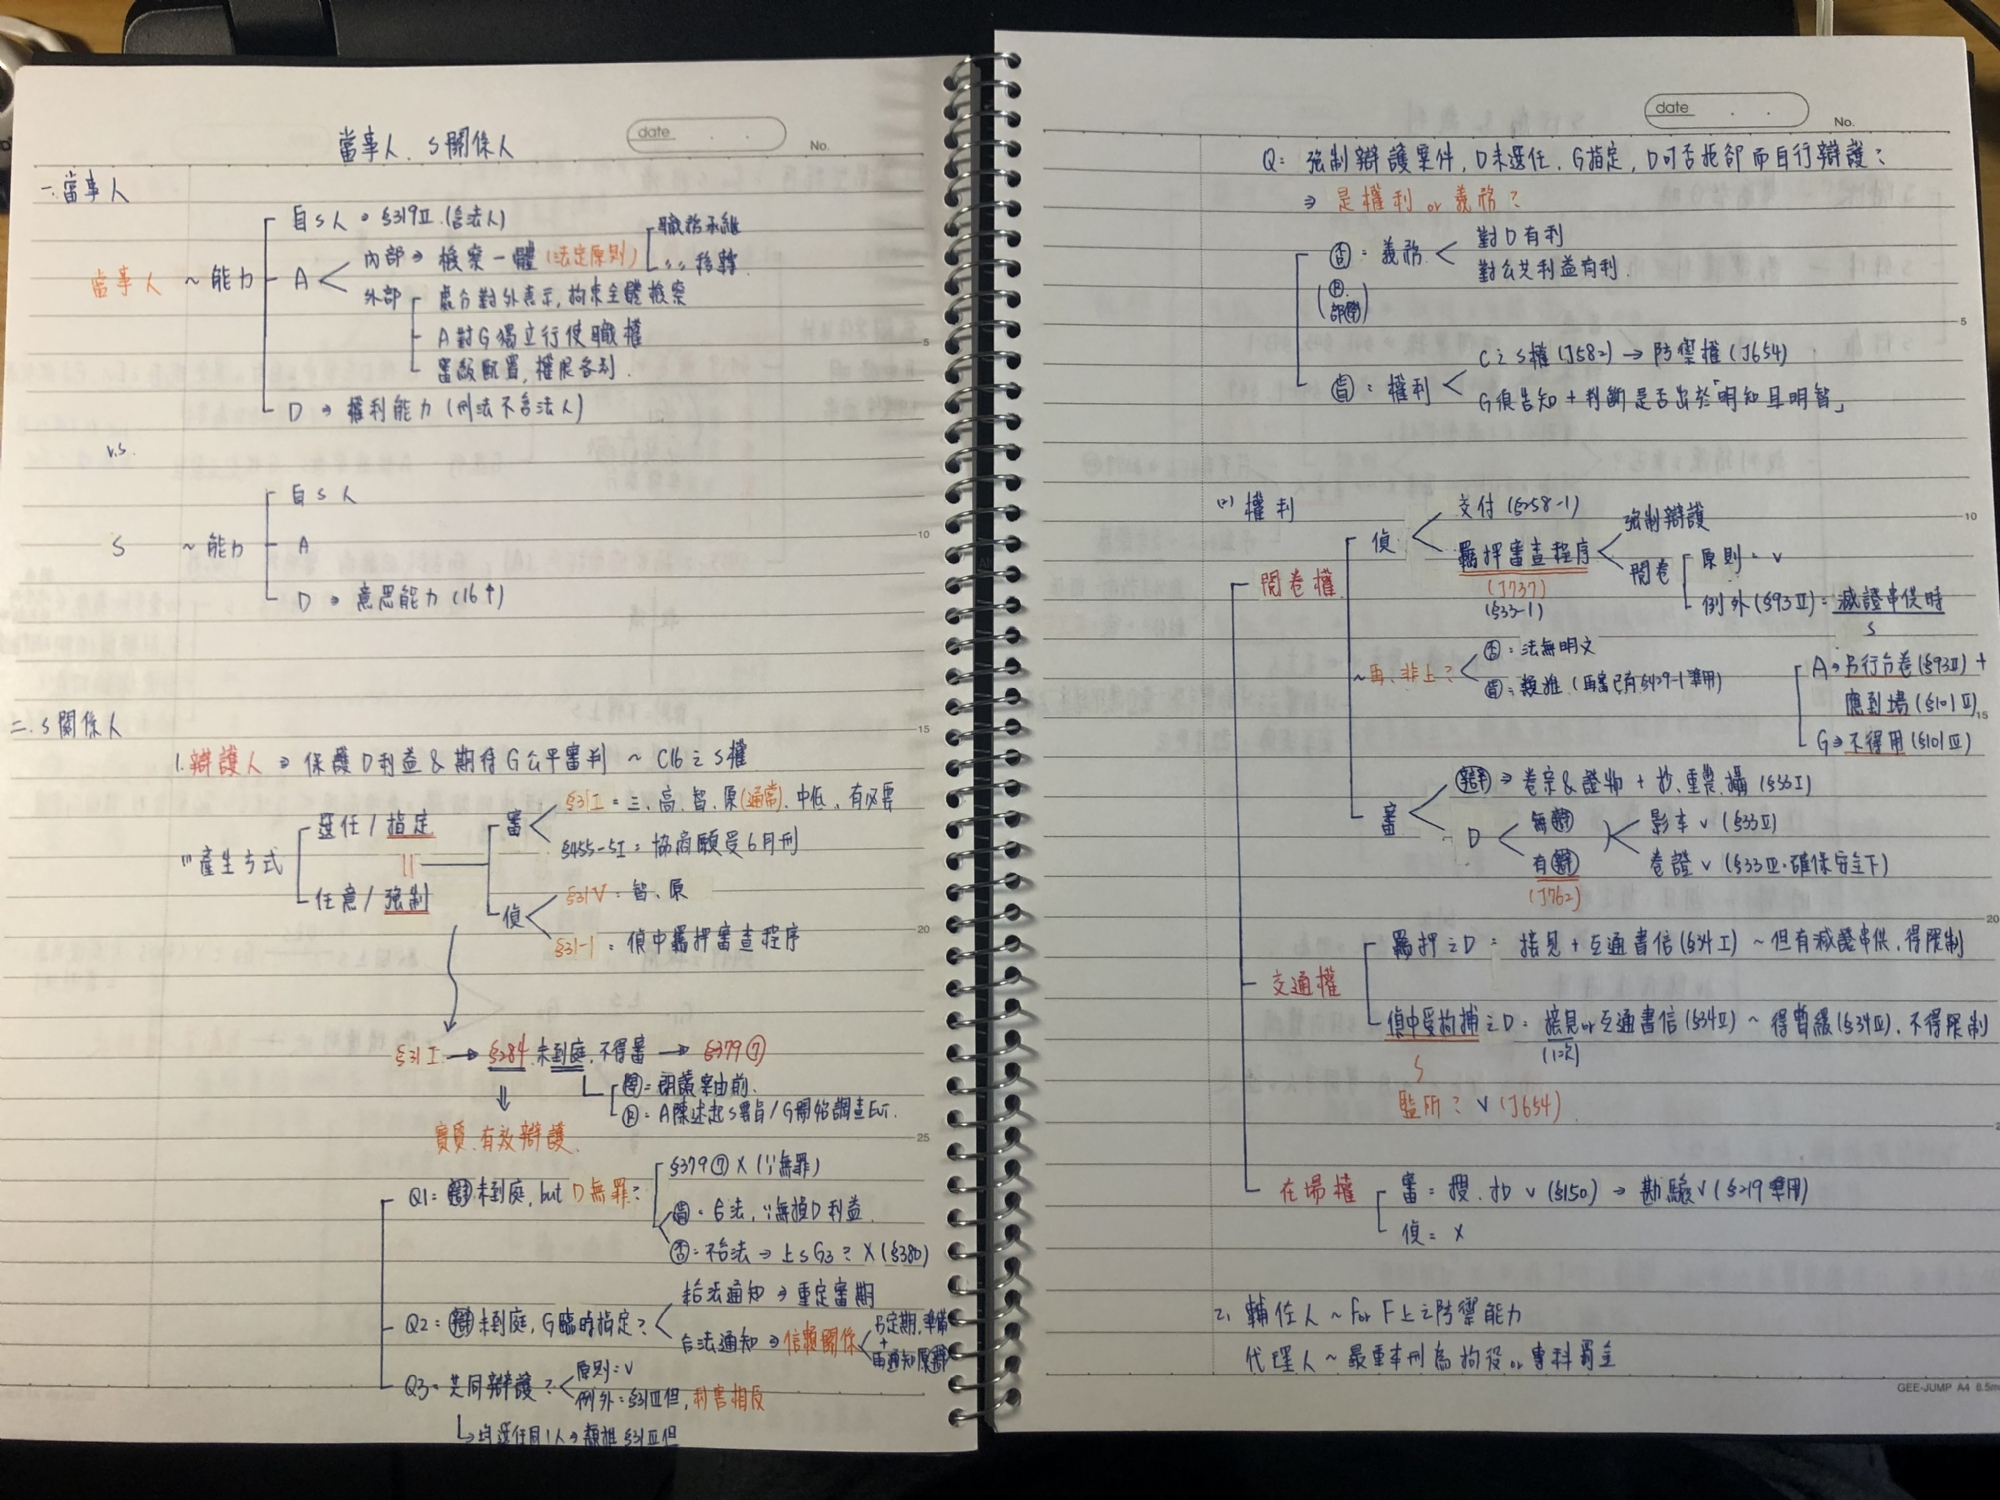 date . .
No.
當事人、S關係人
一、當事人
當事人 ~能力
自S人。§319II (含法人)
A
內部→檢察一體(法定原則)
職務承繼
〃 移轉
外部
處分對外表示,拘束全體檢察
A對G獨立行使職權
審級配置,權限各別.
D → 權利能力 (刑法不含法人)
v.s.
S ~能力
自S人
A
D → 意思能力 (16↑)
二. S關係人
1.辯護人 → 保護D利益 & 期待G公平審判 ~ C16之S權
(1)產生方式
選任/指定
任意/強制
審
§31I = 三、高、智、原(通常)、中低、有必要
§455-5I = 協商願受6月刑
偵
§31V = 智、原
§31-1 = 偵中羈押審查程序
§31I → §284 未到庭,不得審 → §379⑦
閱= 朗讀案由前.
A陳述起S要旨/G開始調查Evi.
實質、有效辯護.
Q1= 辯未到庭, but D無罪?
§379⑦ X (∵無罪)
肯= 合法,∵無損D利益.
否= 不合法 → 上S G3? X (§380)
Q2= 辯未到庭, G臨時指定?
未合法通知 → 重定審期
合法通知 → 信賴關係
另定期,準備
+
再通知原辯
Q3= 共同辯護?
原則= v
例外= §31III但,利害相反
↳均選任同1人→類推§31III但
date . .
No.
Q= 強制辯護案件, D未選任, G指定, D可否拒卻而自行辯護?
→ 是權利 or 義務?
否= 義務
對D有利
對公共利益有利.
肯= 權利
C之S權(J582) → 防禦權(J654)
G須告知+判斷是否出於「明知且明智」
(2) 權利
閱卷權
偵
交付 (§258-1)
羈押審查程序
(J737)
(§33-1)
強制辯護
閱卷
原則= v
例外 (§93II)= 滅證串供時
A→另行分卷(§93II) +
應到場 (§101II)
G→不得用 (§101III)
~再、非上?
否= 法無明文
肯= 類推 (再審已有§429-1準用)
審
辯→卷宗&證物 + 抄、重製、攝 (§33I)
D
無辯
有辯
(J762)
影本 v (§33II)
卷證 v (§33III,確保安全下)
交通權
羈押之D = 接見 + 互通書信 (§34I) ~但有滅證串供,得限制
偵中受拘捕之D = 接見 or 互通書信 (§34II) ~ 得暫緩 (§34III),不得限制
(1次)
監所? v (J654)
在場權
審= 搜、扣 v (§150) → 勘驗 v (§219準用)
偵= X
2. 輔佐人 ~ for F上之防禦能力
代理人 ~ 最重本刑為拘役 or 專科罰金
GEE-JUMP A4 8.5m